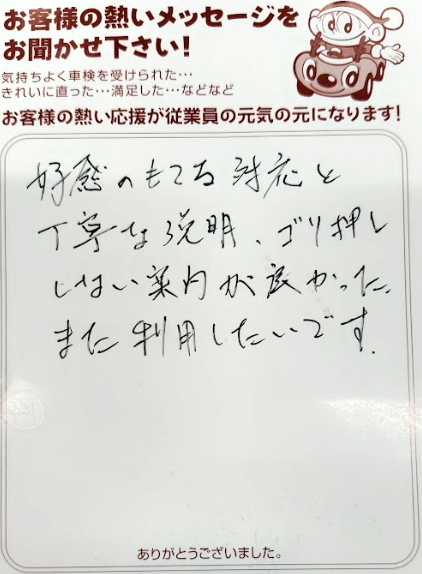 お客様の熱いメッセージを
お聞かせ下さい!
気持ちよく車検を受けられた…
きれいに直った…満足した…などなど
お客様の熱い応援が従業員の元気の元になります!
好感のもてる対応と
丁寧な説明、ゴリ押し
しない案内が良かった。
また利用したいです。
ありがとうございました。